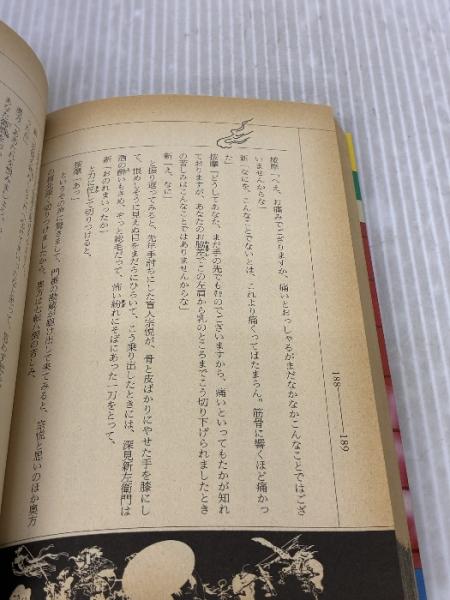 188——189
按摩「へえ、お痛みでござりますか、痛いとおっしゃるがまだなかなかこんなことではござ
いませんからな」
新「なにを、こんなことでないとは、これより痛くってはたまらん。筋骨に響くほど痛かっ
た」
按摩「どうしてあなた、まだ手の先でもむのでございますから、痛いといってもたかが知れ
ておりますが、あなたのお脇差でこの左肩から乳のところまでこう切り下げられましたとき
の苦しみはこんなことではありませんからな」
新「え、なに」
と振り返ってみると、先年手討ちにした盲人宗悦が、骨と皮ばかりにやせた手を膝にし
て、恨めしそうに見えぬ目をまだらにひらいて、こう乗り出したときには、深見新左衛門は
酒の酔いもさめ、ぞっと総毛だって、怖い紛れにそばにあった一刀をとって、
新「おのれまいったか」
と力に任して切りつけると、
按摩「あっ」
というその声に驚きまして、門番の勘蔵が駆け出して来てみると、宗悦と思いのほか奥方